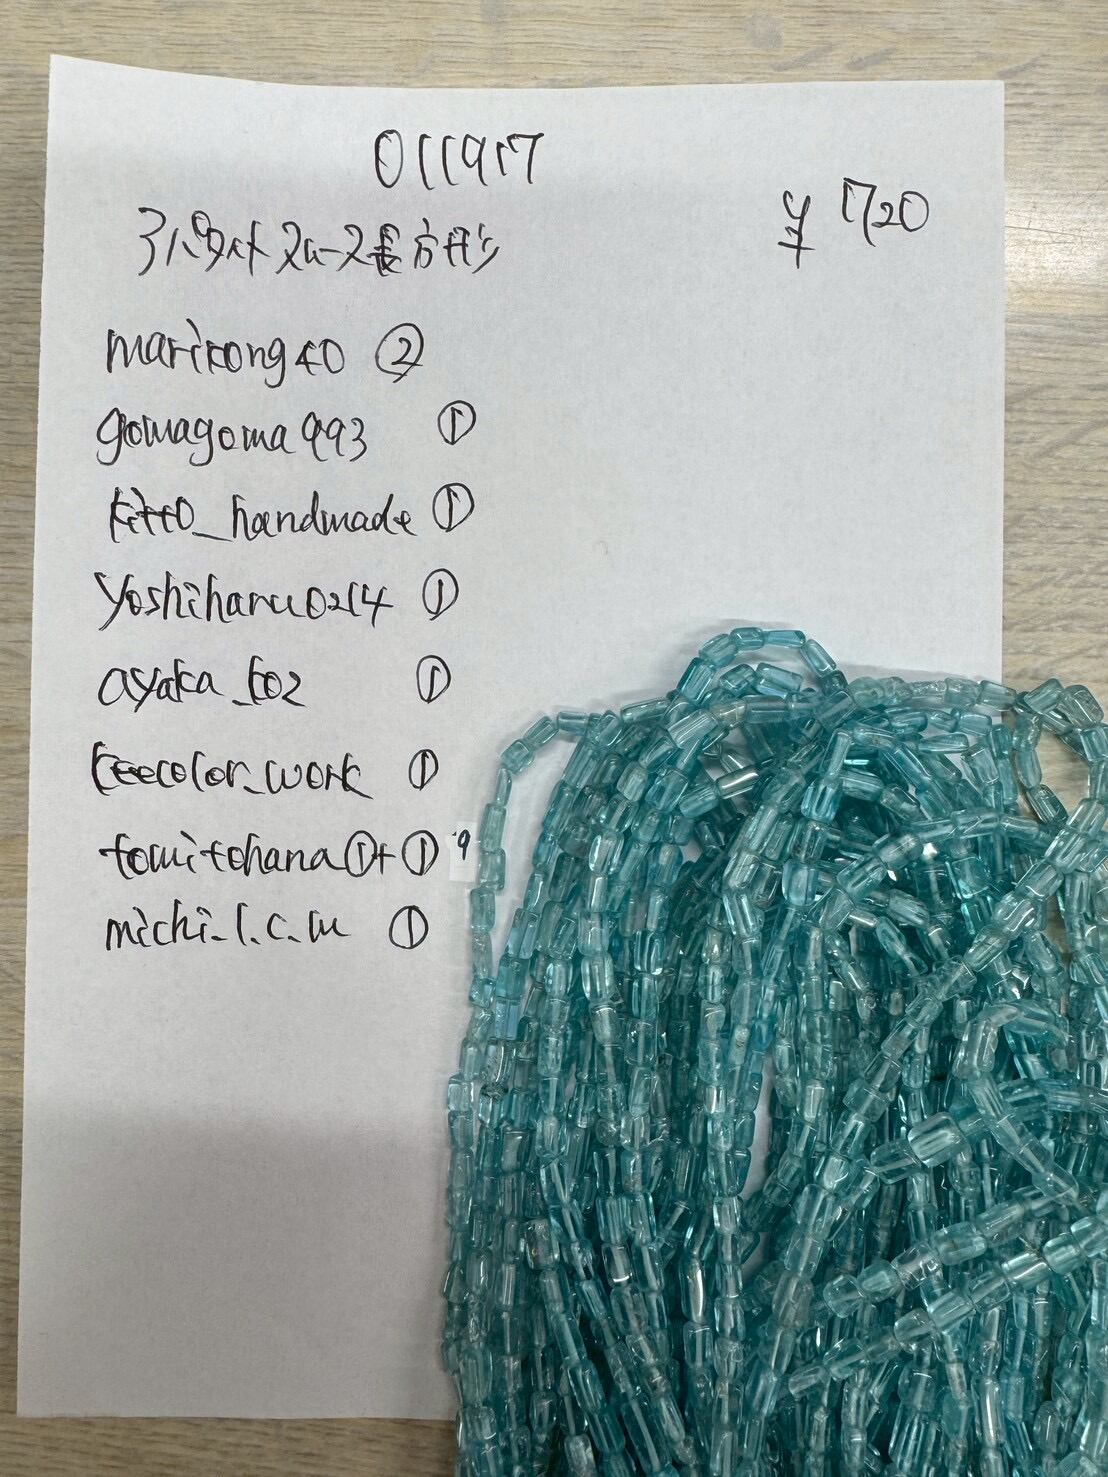 011917
¥1720
アパタイトスムース長方形
marikong40 ②
gomagoma993 ①
kitto_handmade ①
yoshiharu0214 ①
ayaka_602 ①
keecolor_work ①
tomitohana①+①
9
michi_l.c.m ①